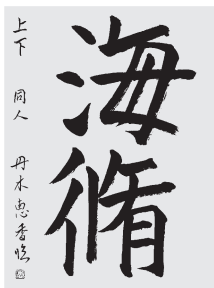 海脩
上下 同人 丹木恵香臨